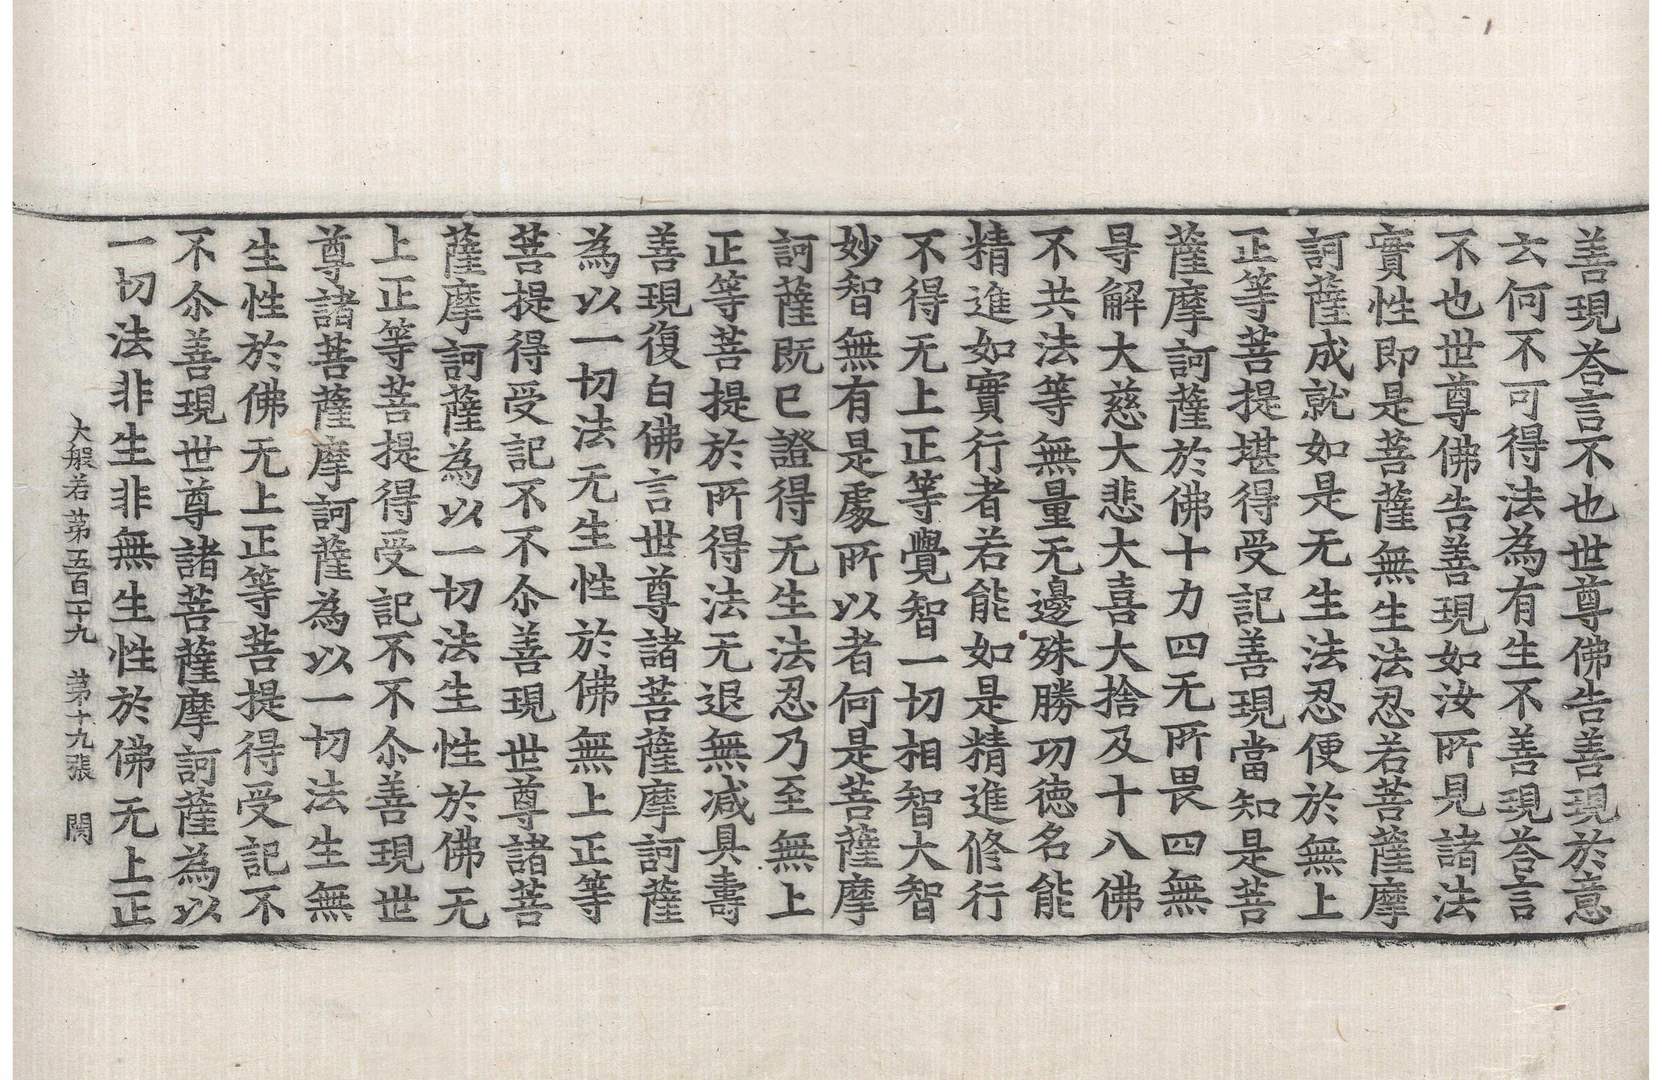 善現荅言不也世尊佛告善現於意
云何不可得法為有生不善現荅言
不也世尊佛告善現如汝所見諸法
實性即是菩薩無生法忍若菩薩摩
訶薩成就如是无生法忍便於無上
正等菩提堪得受記善現當知是菩
薩摩訶薩於佛十力四无所畏四無
㝵解大慈大悲大喜大捨及十八佛
不共法等無量无邊殊勝功德名能
精進如實行者若能如是精進修行
不得无上正等覺智一切相智大智
妙智無有是處所以者何是菩薩摩
訶薩既已證得无生法忍乃至無上
正等菩提於所得法无退無减具壽
善現復白佛言世尊諸菩薩摩訶薩
為以一切法无生性於佛無上正等
菩提得受記不不尒善現世尊諸菩
薩摩訶薩為以一切法生性於佛无
上正等菩提得受記不不尒善現世
尊諸菩薩摩訶薩為以一切法生無
生性於佛无上正等菩提得受記不
不尒善現世尊諸菩薩摩訶薩為以
一切法非生非無生性於佛无上正
大般若第五百二十九 第十九張 闕